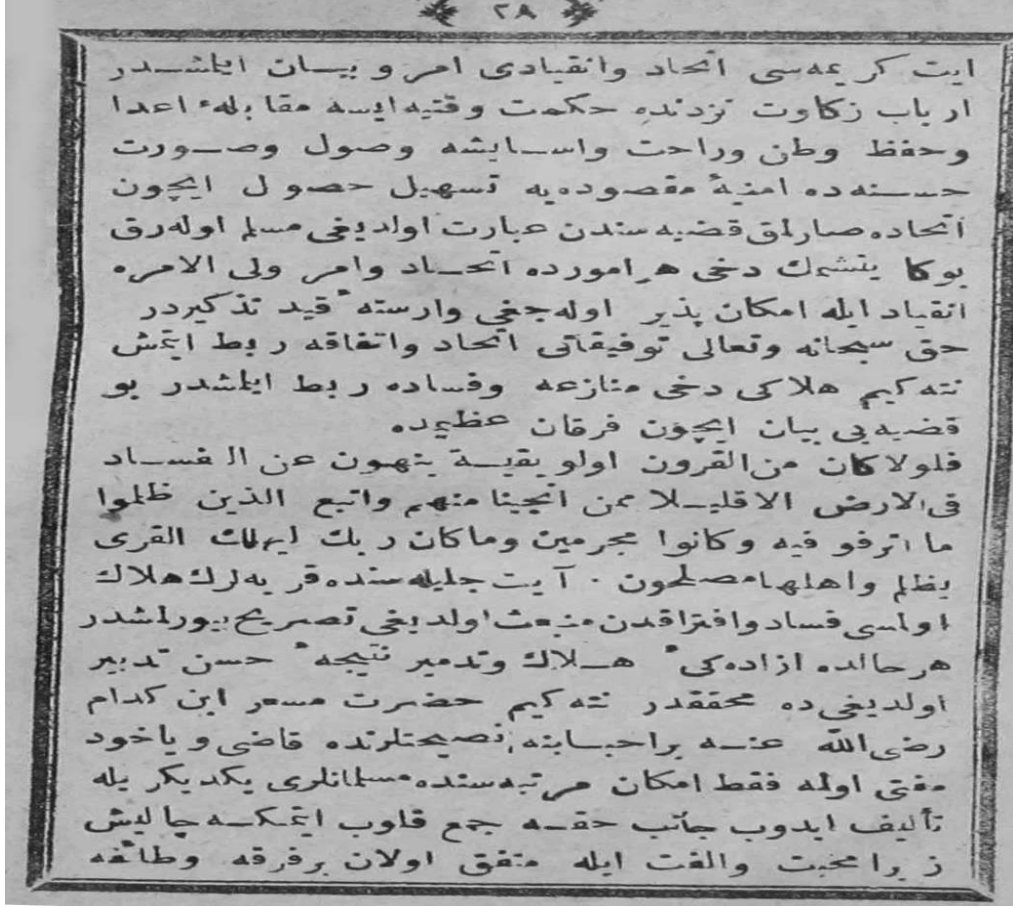 ٢٨
ایت کریمه‌سی اتحاد وانقیادی امر و بیــان ایلمشــدر
ارباب زکاوت نزدنده حکمت وقتیه ایسه مقابلهٔ اعدا
وحفظ وطن وراحت واســایشه وصول وصــورت
حسنه‌ده امنیهٔ مقصوده‌یه تسهیل حصول ایچون
اتحاده صارلمق قضیه سندن عبارت اولدیغی مسلم اوله‌رق
بوکا یتشمك دخی هر امورده اتحــاد وامر ولی الامره
انقیاد ایله امکان پذیر اوله‌جغی وارستهٔ قید تذکیردر
حق سبحانه وتعالی توفیقاتی اتحاد واتفاقه ربط ایتمش
نته‌کیم هلاکی دخی منازعه وفساده ربط ایلمشدر بو
قضیه‌یی بیان ایچون فرقان عظیمده
فلولا کان من القرون اولو بقیــة ینهون عن الفســاد
فی الارض الا قلیــلا ممن انجینا منهم واتبع الذین ظلموا
ما اترفو فیه وکانوا مجرمین وماکان ربك لیهلك القری
بظلم واهلها مصلحون ٠ آیت جلیله سنده قریه‌لرك هلاك
اولمسی فساد وافتراقدن منبعث اولدیغی تصریح بیورلمشدر
هر حالده ازاده‌کیٔ هــلاك وتدمیر نتیجهٔ حسن تدبیر
اولدیغی ده محققدر نته‌کیم حضرت مسعر ابن کدام
رضی الله عنــه براحبــابنه نصیحتلرنده قاضی ویاخود
مفتی اولمه فقط امکان مرتبه سنده مسلمانلری یکدیکریله
تألیف ایدوب جانب حقــه جمع قلوب ایتمکــه چالیش
زیرا محبت والفت ایله متفق اولان برفرقه وطائفه